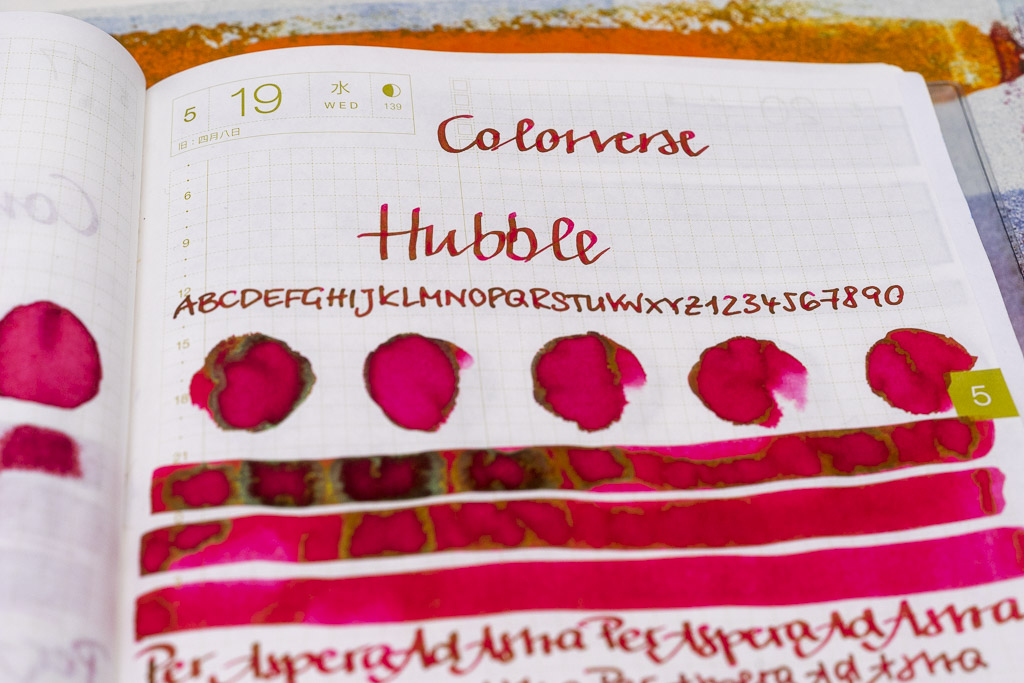 5 19 水 WED 139
旧:四月八日
Colorverse
6
Hubble
9
12
ABCDEFGHIJKLMNOPQRSTUVWXYZ1234567890
15
18
5
21
Per Aspera Ad Astra Per Aspera Ad Astra
Per Aspera Ad Astra